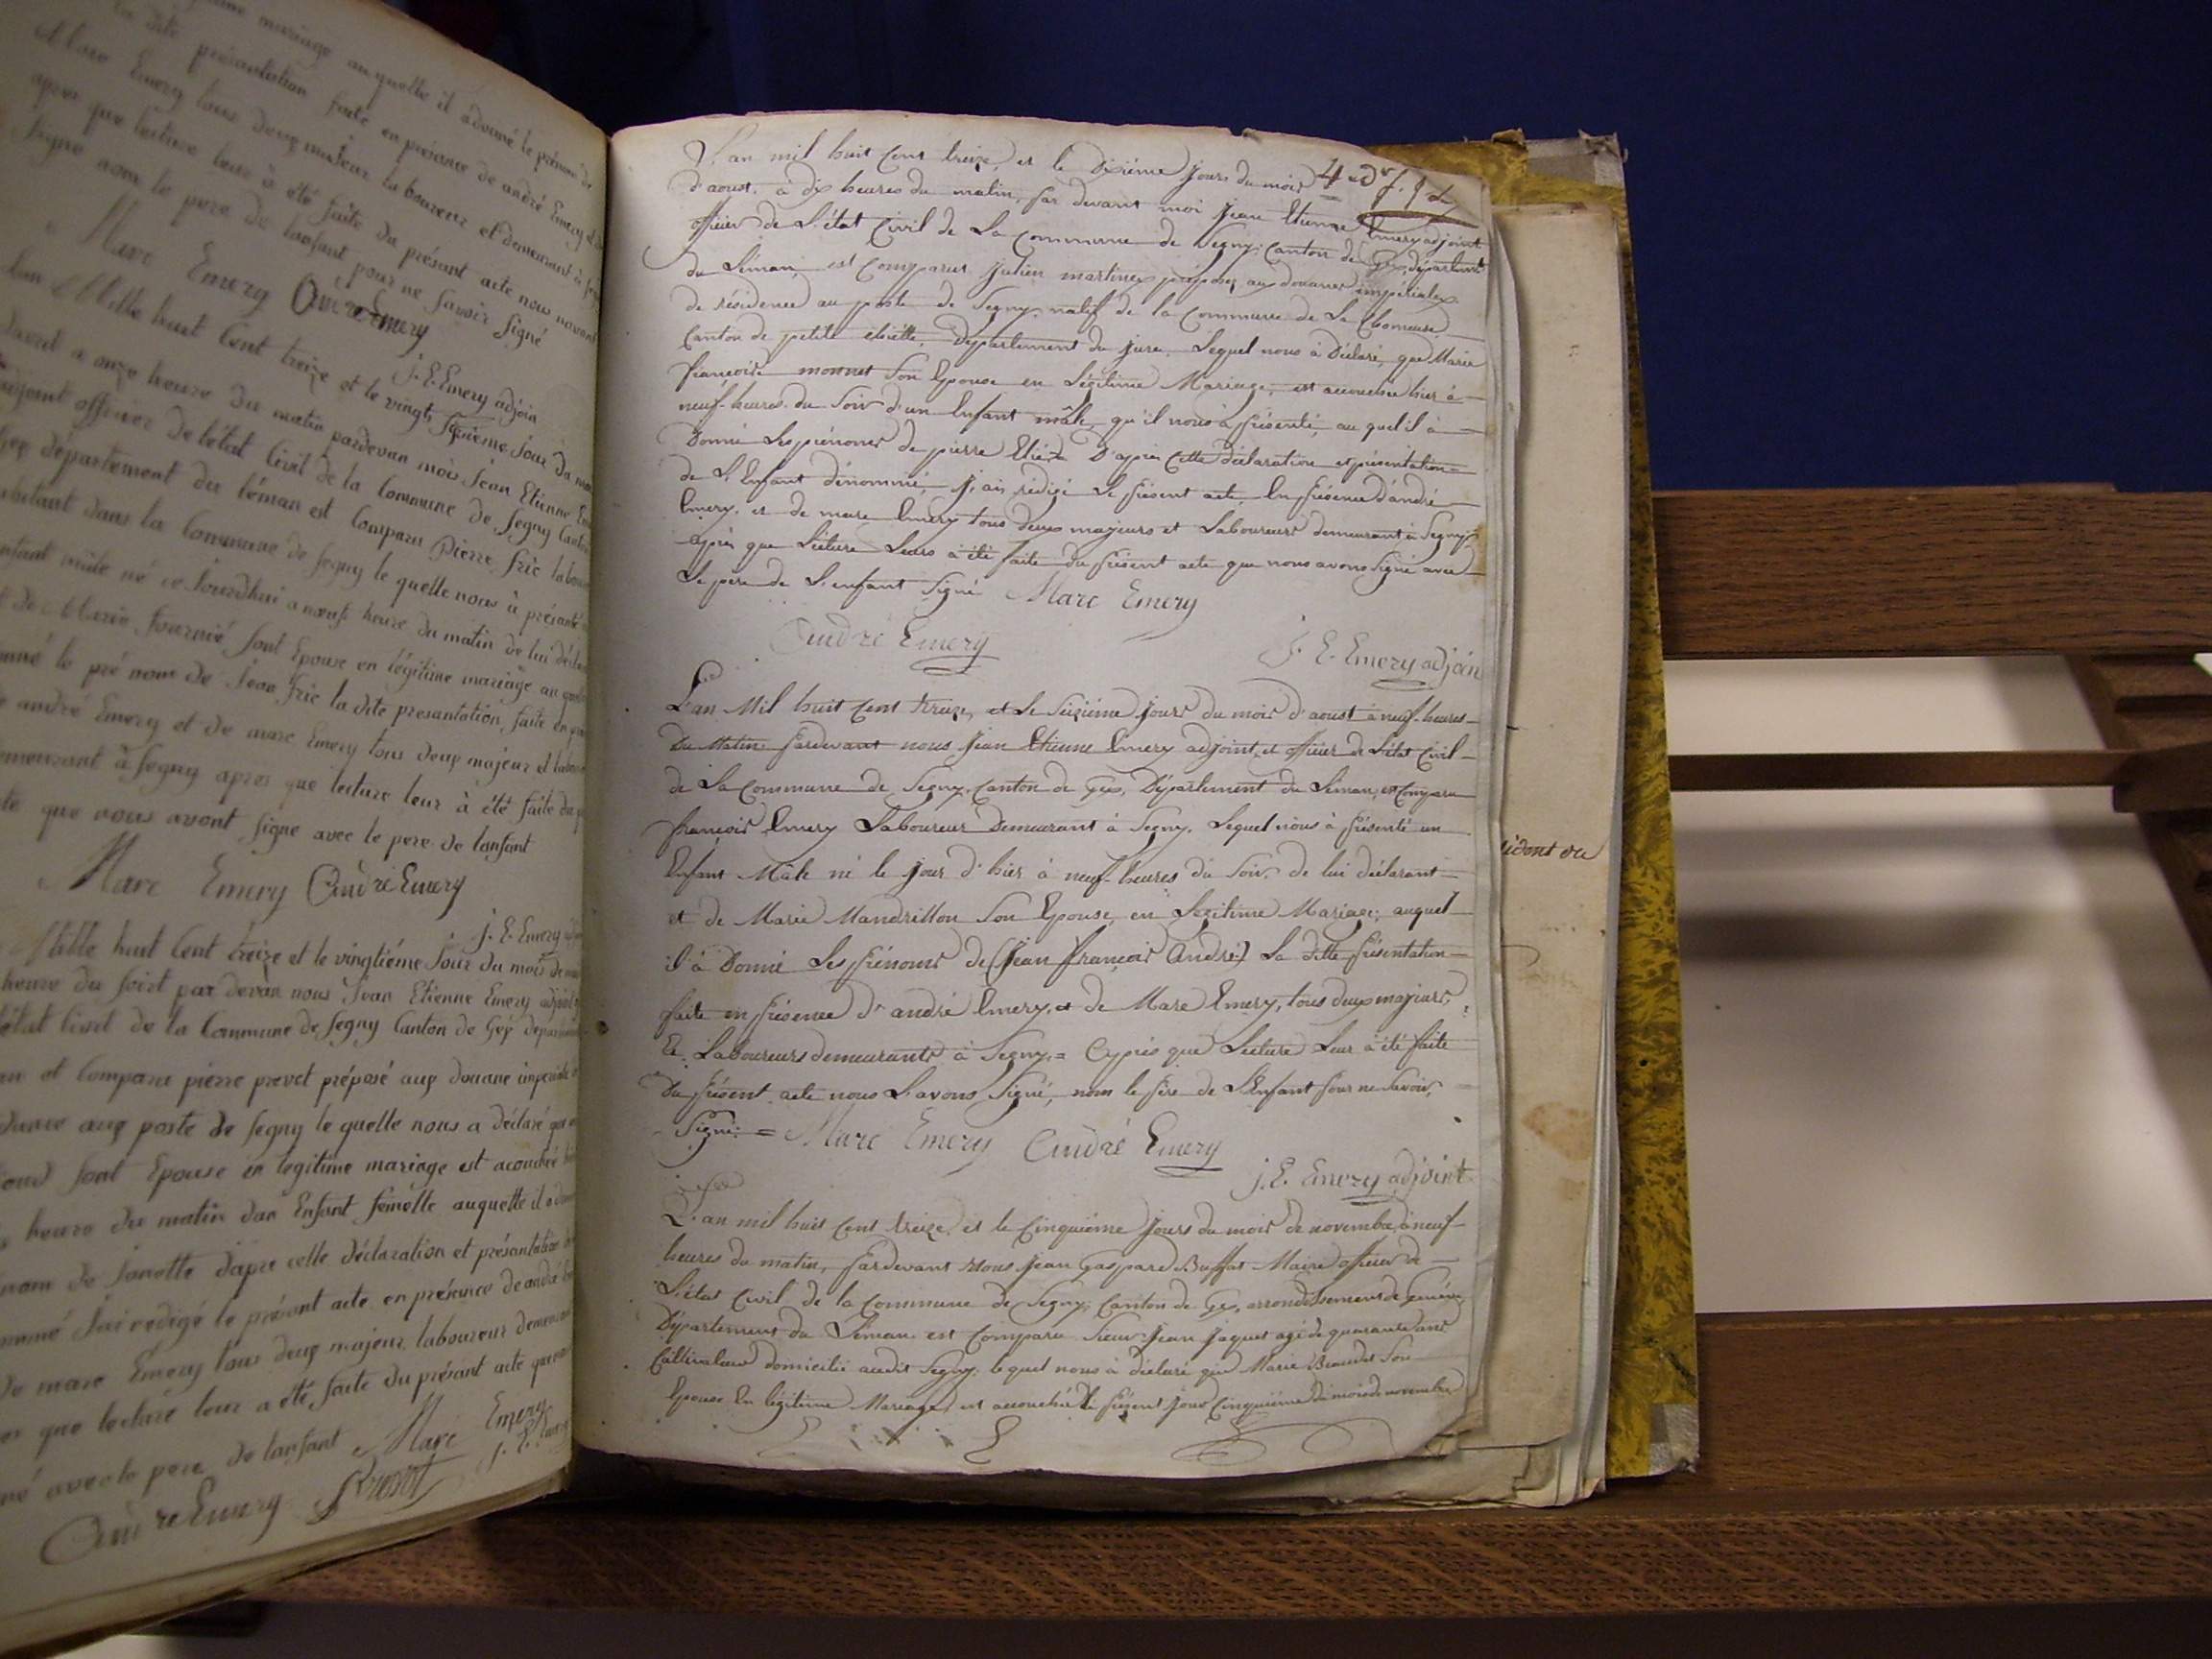 mariage auquelle il adonné le prénom de
la dite présantation faite en présance de andré Emery et de
Marc Emery tous deux majeur laboureur et demeurant à
apres que lecture leur à été faite du présant acte nous navons
signe avec le pere de lanfant pour ne savoir signé
Marc Emery André Emery
J. E. Emery adjoin
Lan Mille huit Cent treize et le vingt septième Jour du
davril a onze heure du matin pardevan nous Jean Etienne
adjoint officier de létat Civil de la Commune de Segny Canton
Gex département du léman est Comparu Pierre fric
habitant dans la Commune de Segny le quelle nous à présanté
enfant mâle né ce Jourdhui a neuf heure du matin de lui
et de Marie fournié sont Epouse en légitime mariage au
donné le pré nom de Jean fric la dite presantation faite en
de andré Emery et de marc Emery tous deux majeur et
demeurant à Segny apres que lecture leur à été faite du
acte que nous avont signe avec le pere de lanfant
Marc Emery André Emery
J. E. Emery
Mille huit Cent treize et le vingtiéme Jour du mois de
heure du soirt par devan nous Jean Etienne Emery adjoint
létat Civil de la Commune de Segny Canton de Gex
et Comparu pierre prevot préposé aux douane imperiale
aux poste de Segny le quelle nous a déclaré que
sont Epouse en legitime mariage est acouchée
heure du matin dun Enfant femelle auquelle il a
nom de Janette dapre cette déclaration et présantation
Jai redigé le présant acte en présance de andré
de marc Emery tous deux majeur laboureur
que lecture leur a été faite du présant acte que
avec le pere de lanfant Marc Emery
J. E. Emery
André Emery Prevot
L'an mil huit cent treize, et le dixiéme jours du mois
d'aoust, à dix heures du matin, par devant moi Jean Etienne Emery adjoint
officier de L'état Civil de La Commune de Segny, Canton de Gex, départemt
du Léman, est Comparus Julien martinez préposez aux douanes impériales
de résidence au poste de Segny natif de la Commune de La
Canton de petite Département du Jura. Lequel nous à Déclaré, que Marie
françoise monnet Son Epouse en Légitime Mariage, est accouchée hier à
neuf heures du Soir d'un Enfant mâle, qu'il nous à présenté, au quel il à
Donné Les prénoms de pierre D'après Cette déclaration et présentation
de L'Enfant dénommé, J'ai rédigé Le présent acte, En présence d'andré
Emery, et de marc Emery tous deux majeurs et Laboureurs demeurant à Segny
après que Lecture Leurs à été faite du présent acte que nous avons Signé avec
Le pere de L'enfant Signé Marc Emery
André Emery
J. E. Emery adjoin
L'an Mil huit Cent treize, et Le Seiziéme jours du mois d'aoust à neuf heures
Du Matin pardevant nous Jean Etienne Emery adjoint, et officier de L'état Civil
de La Commune de Segny, Canton de Gex, Département du Léman, est Comparu
françois Emery Laboureur Demeurant à Segny. Lequel nous à présenté un
Enfant Mâle né le jour d'hier à neuf heures du Soir, de lui déclarant
et de Marie Mandrillon Son Epouse, en Legitime Mariage; auquel
il à Donné Les prénoms de (Jean françois André) La ditte présentation
faite en présence d'andré Emery, et de Marc Emery, tous deux majeurs,
Et Laboureurs demeurants à Segny = Après que Lecture Leur à été faite
Du présent acte nous L'avons Signé, non le père de L'Enfant pour ne Savoir
Signé = Marc Emery André Emery
J. E. Emery adjoint
L'an mil huit Cent treize et le Cinquiéme jours du mois de novembre, à neuf
heures du matin, pardevant Nous Jean Gaspard Buffat Maire officier de
L'état Civil de la Commune de Segny, Canton de Gex, arrondissement de Genève
Département du Léman est Comparu Sieur Jean Jaquet agé de quarante ans
Cultivateur domicilié audit Segny, lequel nous à déclaré que Marie Son
Epouse En légitime Mariage, est accouchée le présent jour Cinquiéme du mois de novembre